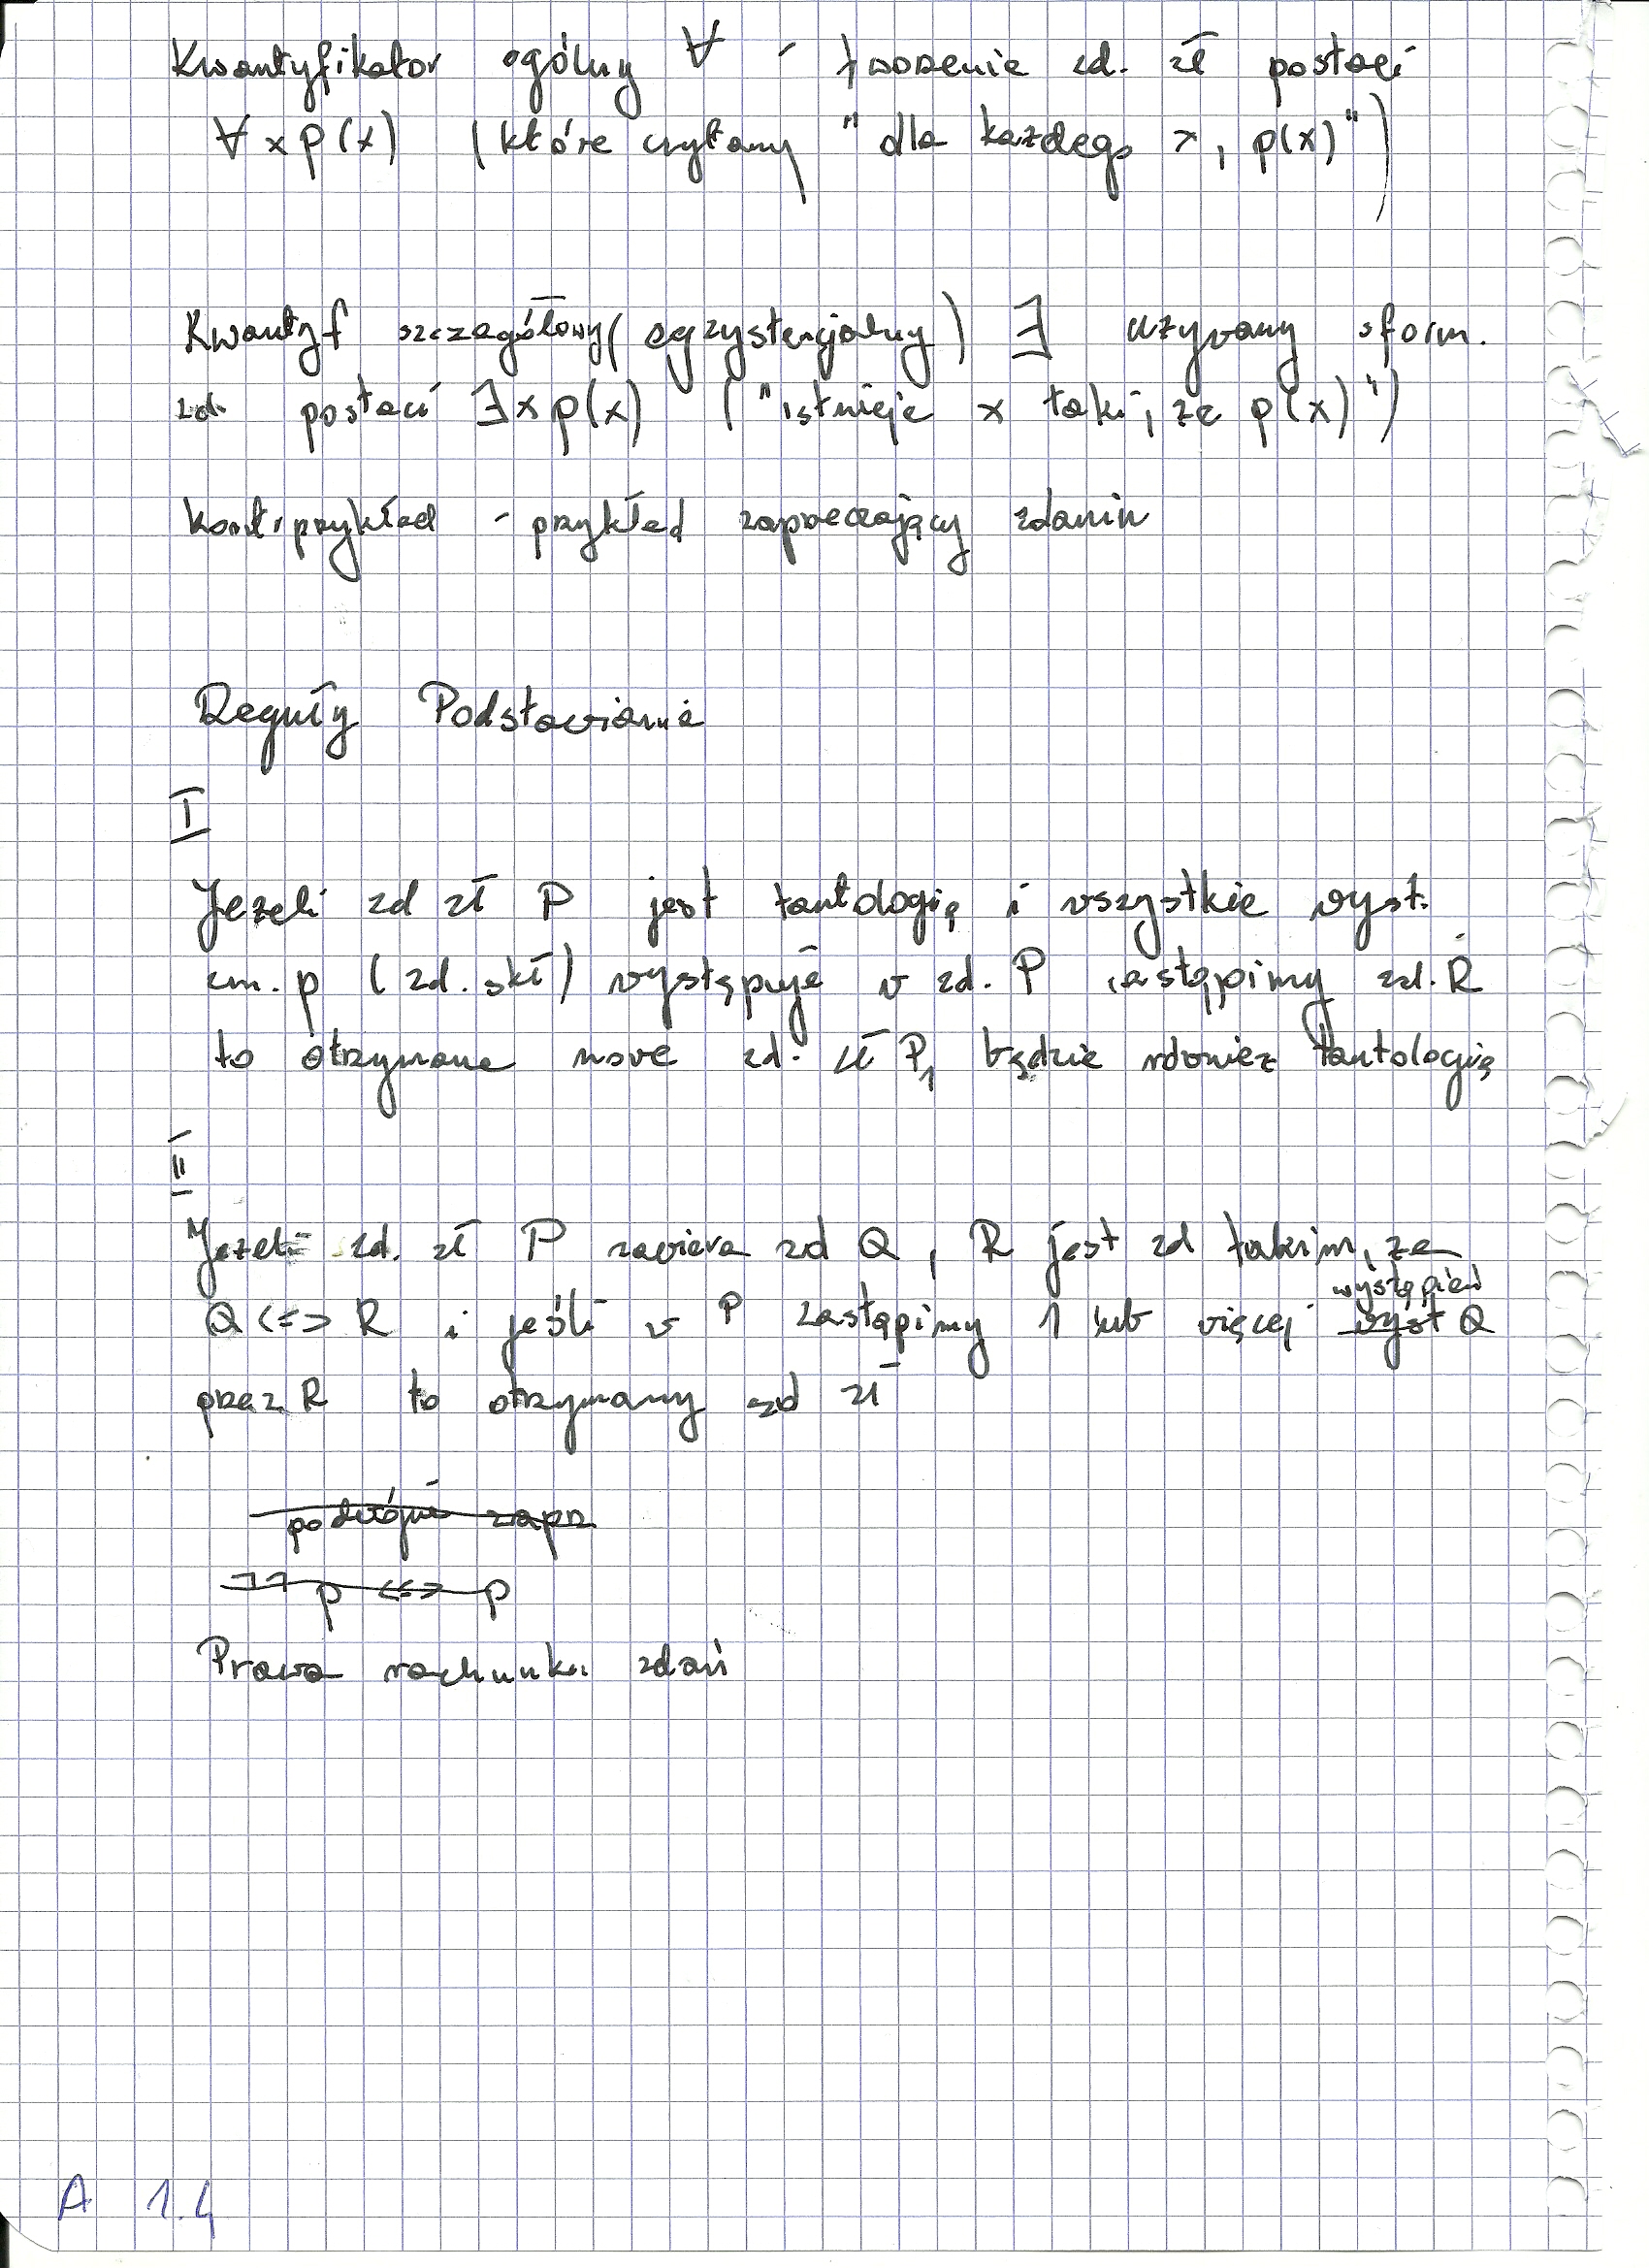 Kwantyfikator ogólny ∀ - tworzenie zd. zł postaci
∀ x p(x) (które czytamy "dla każdego x, p(x)")
Kwantyf szczegółowy (egzystencjalny) ∃ używamy sform.
zd. postaci ∃ x p(x) ("istnieje x taki, ze p(x)")
Kontrprzykład - przykład zaprzeczający zdaniu
Reguły Podstawiania
I
Jezeli zd zł P jest tautologią i wszystkie wyst.
zm. p (zd. skł) występuje w zd. P zastąpimy zd. R
to otrzymane nowe zd. zł P₁ będzie również tautologią
II
Jezeli zd. zł P zawiera zd Q, R jest zd takim, ze
wystąpień
Q <=> R i jeśli w P zastąpimy 1 lub więcej wyst Q
przez R to otrzymamy zd zł
podwójne zaprz
¬¬p <=> p
Prawa rachunku zdań
A 1.4